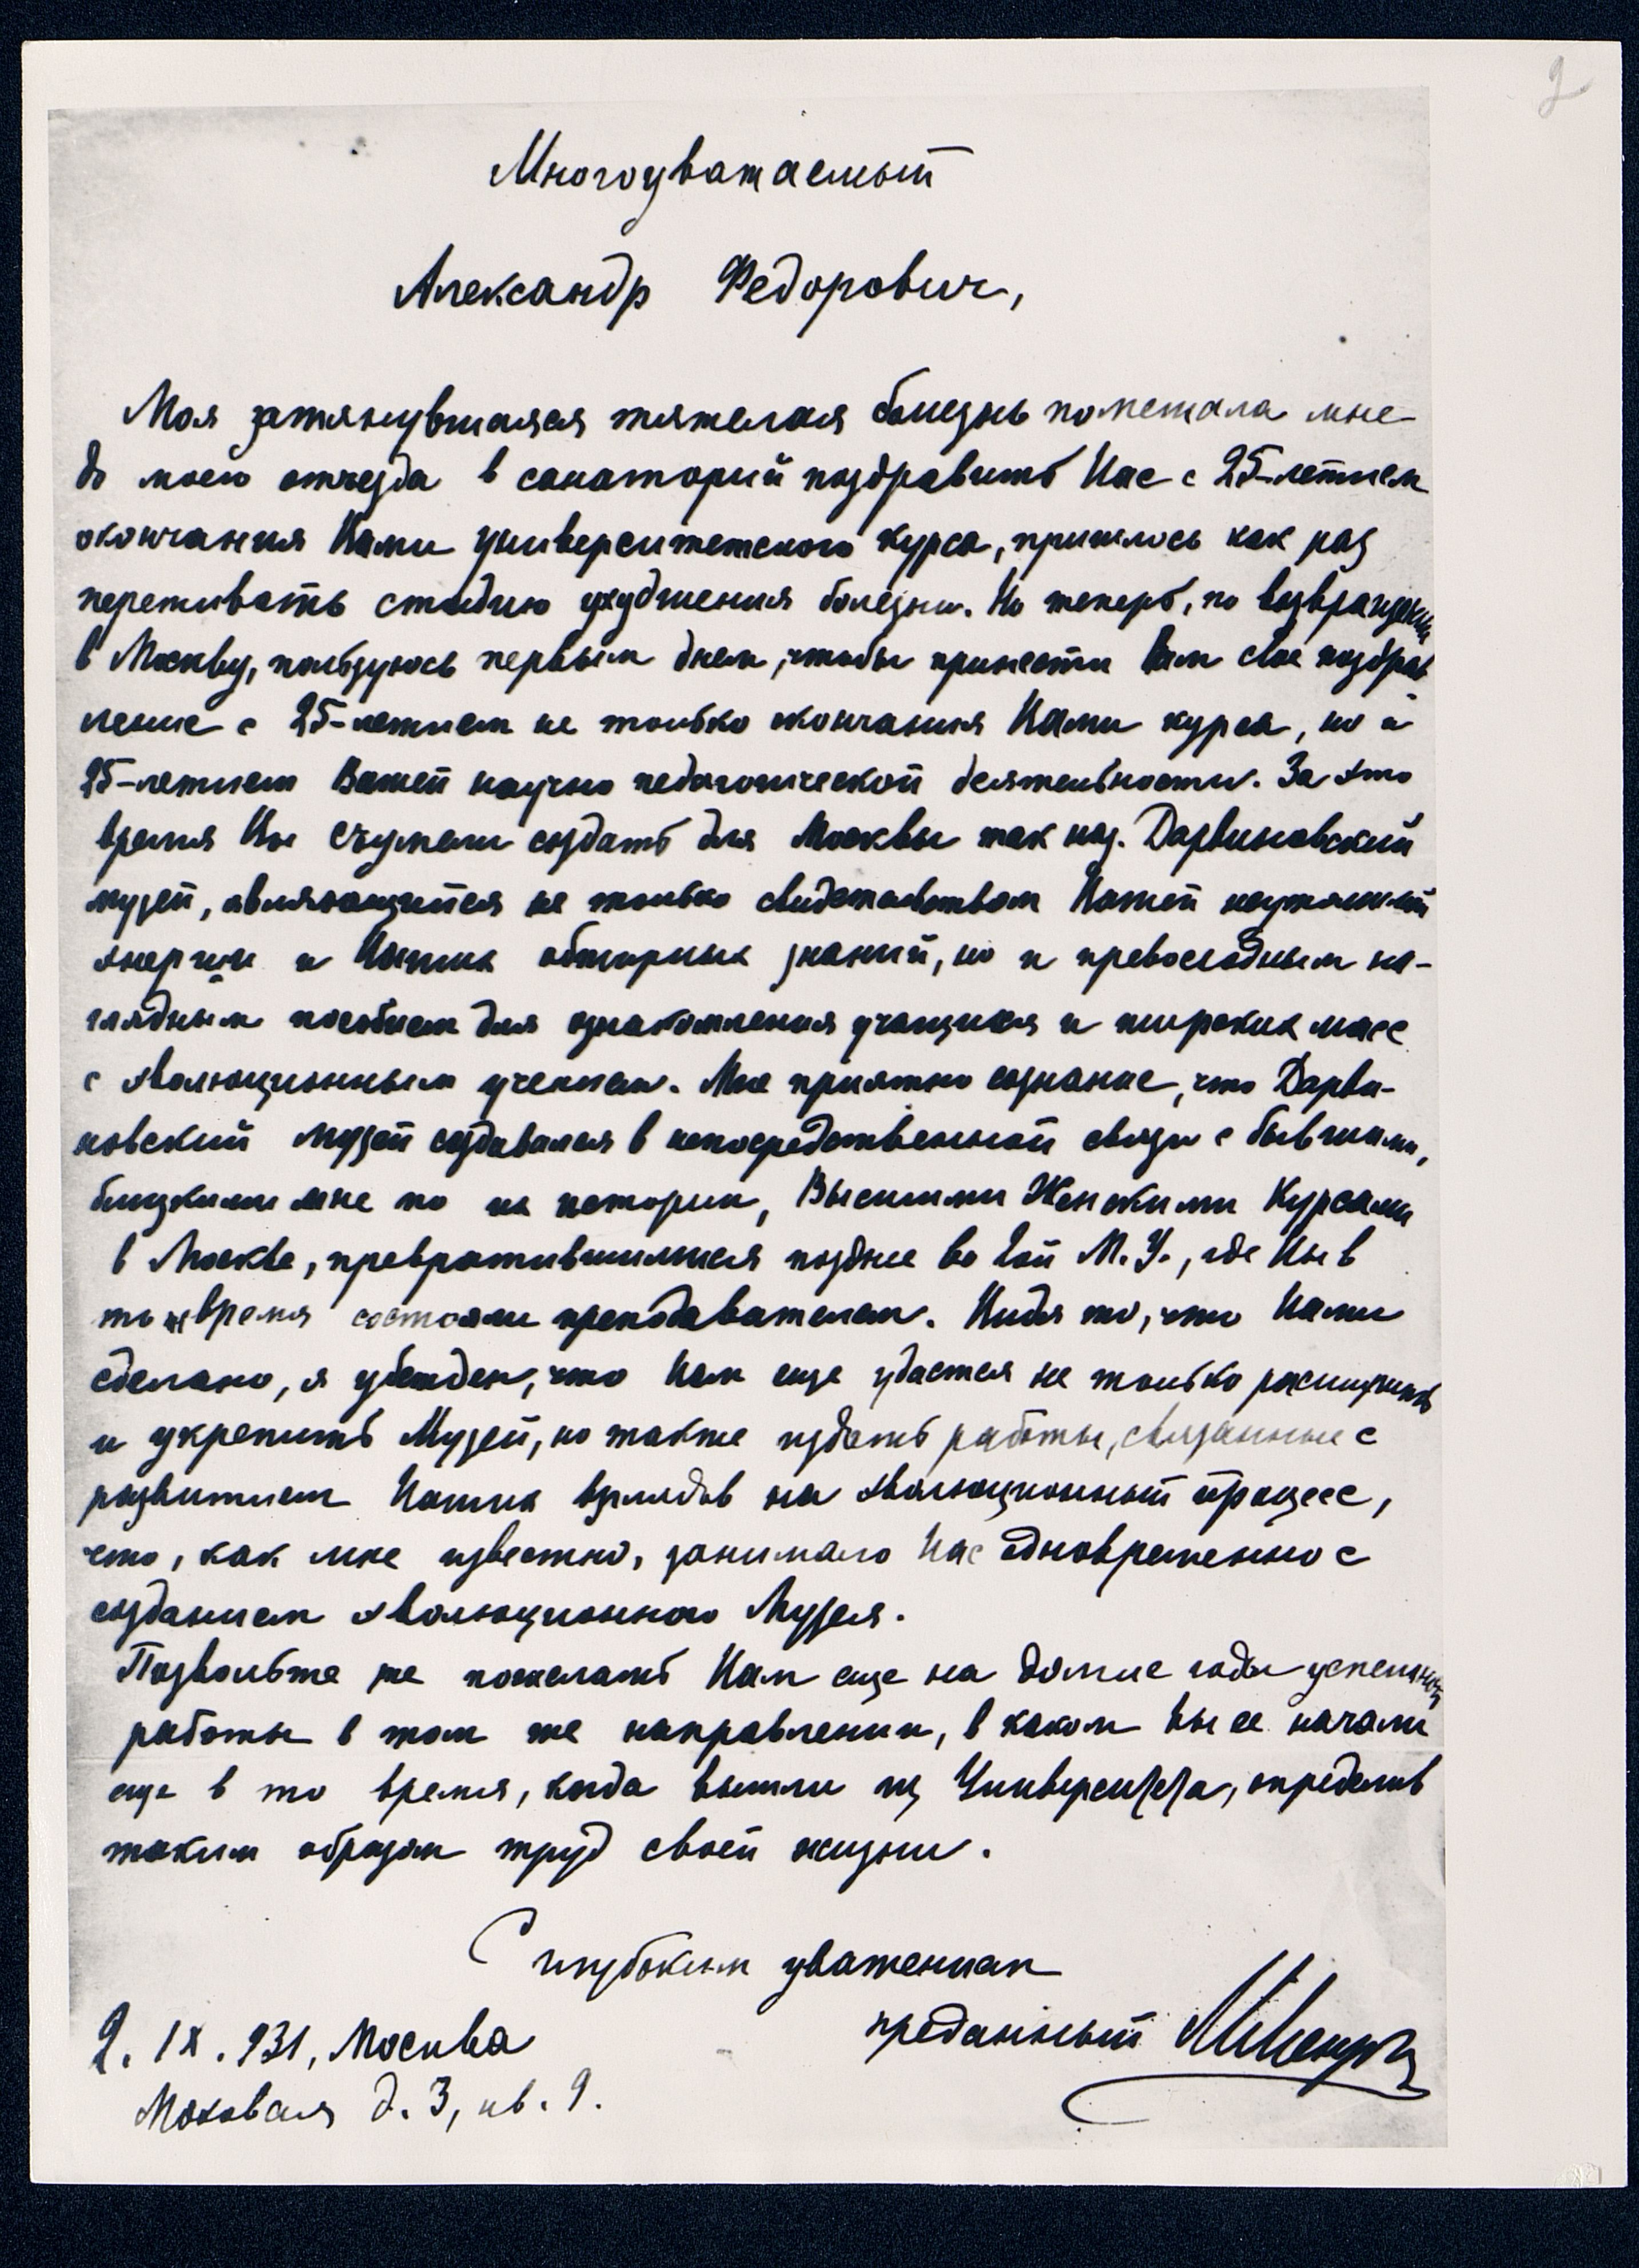 2
Многоуважаемый
Александр Федорович,
Моя затянувшаяся тяжелая болезнь помешала мне
до моего отъезда в санаторий поздравить Вас с 25-летием
окончания Вами университетского курса, пришлось как раз
переживать стадию ухудшения болезни. Но теперь, по возвращении
в Москву, пользуюсь первым днем, чтобы принести Вам свое поздрав
ление с 25-летием не только окончания Вами курса, но и
25-летием Вашей научно педагогической деятельности. За это
время Вы сумели создать для Москвы так наз. Дарвиновский
музей, являющийся не только свидетельством Вашей неутомимой
энергии и Ваших обширных знаний, но и превосходным на-
глядным пособием для ознакомления учащихся и широких масс
с эволюционным учением. Мне приятно сознание, что Дарви-
новский музей создавался в непосредственной связи с бывшими,
близкими мне по их истории, Высшими Женскими Курсами
в Москве, превратившимися позднее во 2ой М.У., где Вы в
то же время состояли преподавателем. Видя то, что Вами
сделано, я убежден, что Вам еще удастся не только расширить
и укрепить Музей, но также издать работы, связанные с
развитием Ваших взглядов на эволюционный процесс,
что, как мне известно, занимало Вас одновременно с
созданием эволюционного Музея.
Позвольте же пожелать Вам еще на долгие годы успешной
работы в том же направлении, в каком Вы ее начали
еще в то время, когда вышли из Университета, определив
таким образом труд своей жизни.
С глубоким уважением
преданный
2. IX. 931, Москва
Моховая д. 3, кв. 9.